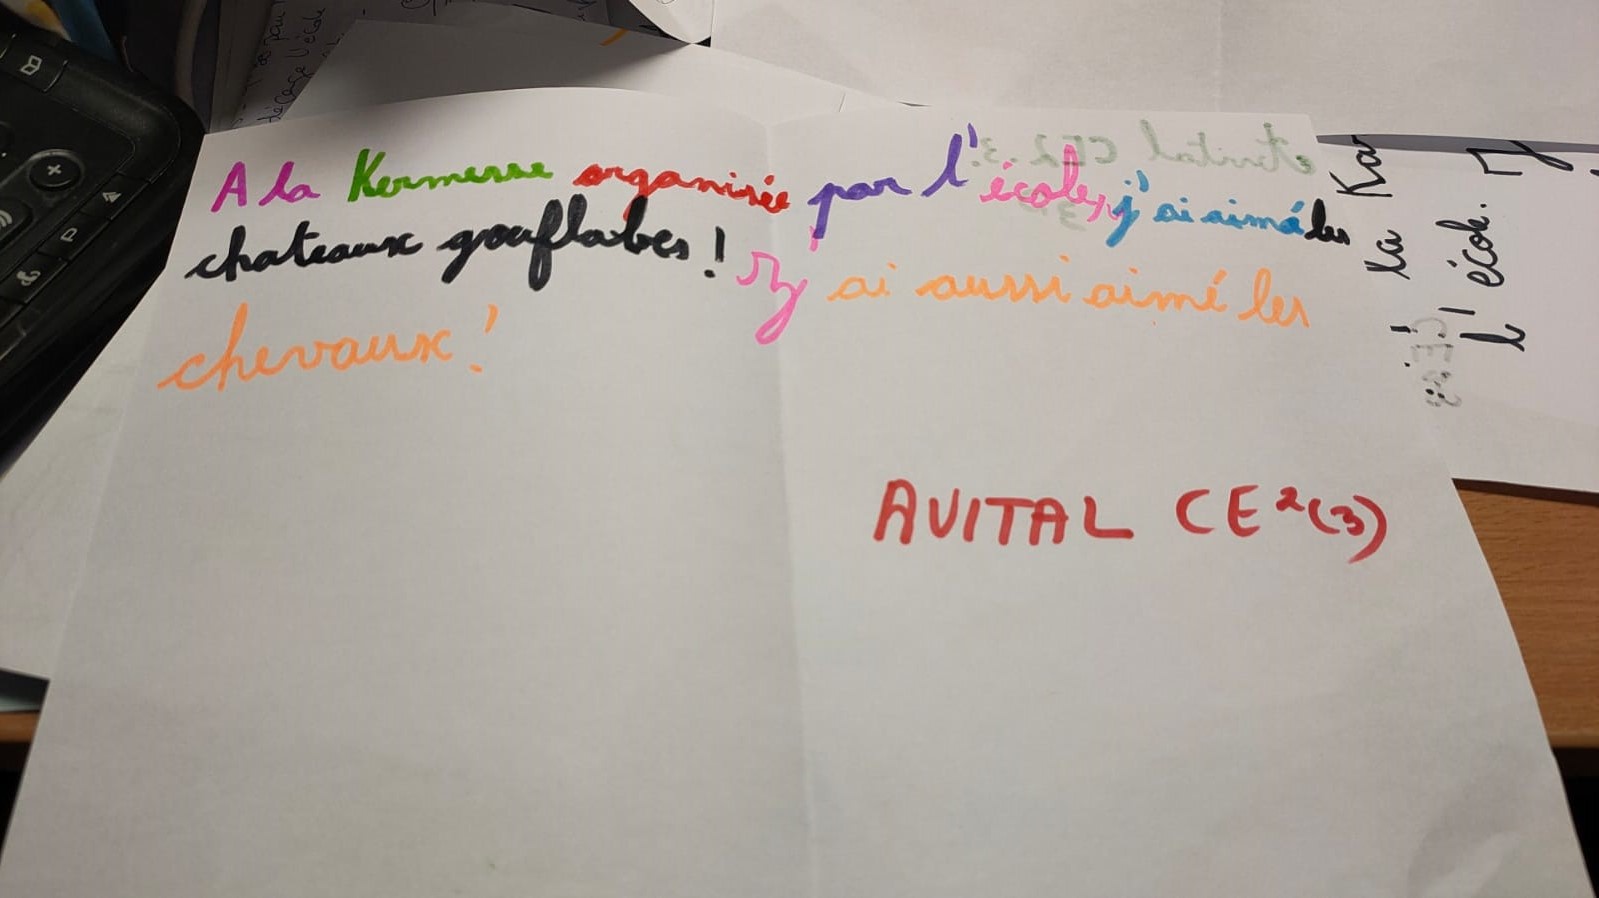 A la Kermesse organisée par l'école, j'ai aimé les
chateaux gonflables ! J'ai aussi aimé les
chevaux !
AVITAL CE²(3)
Avital CE2.3.
la Ka
l'école.